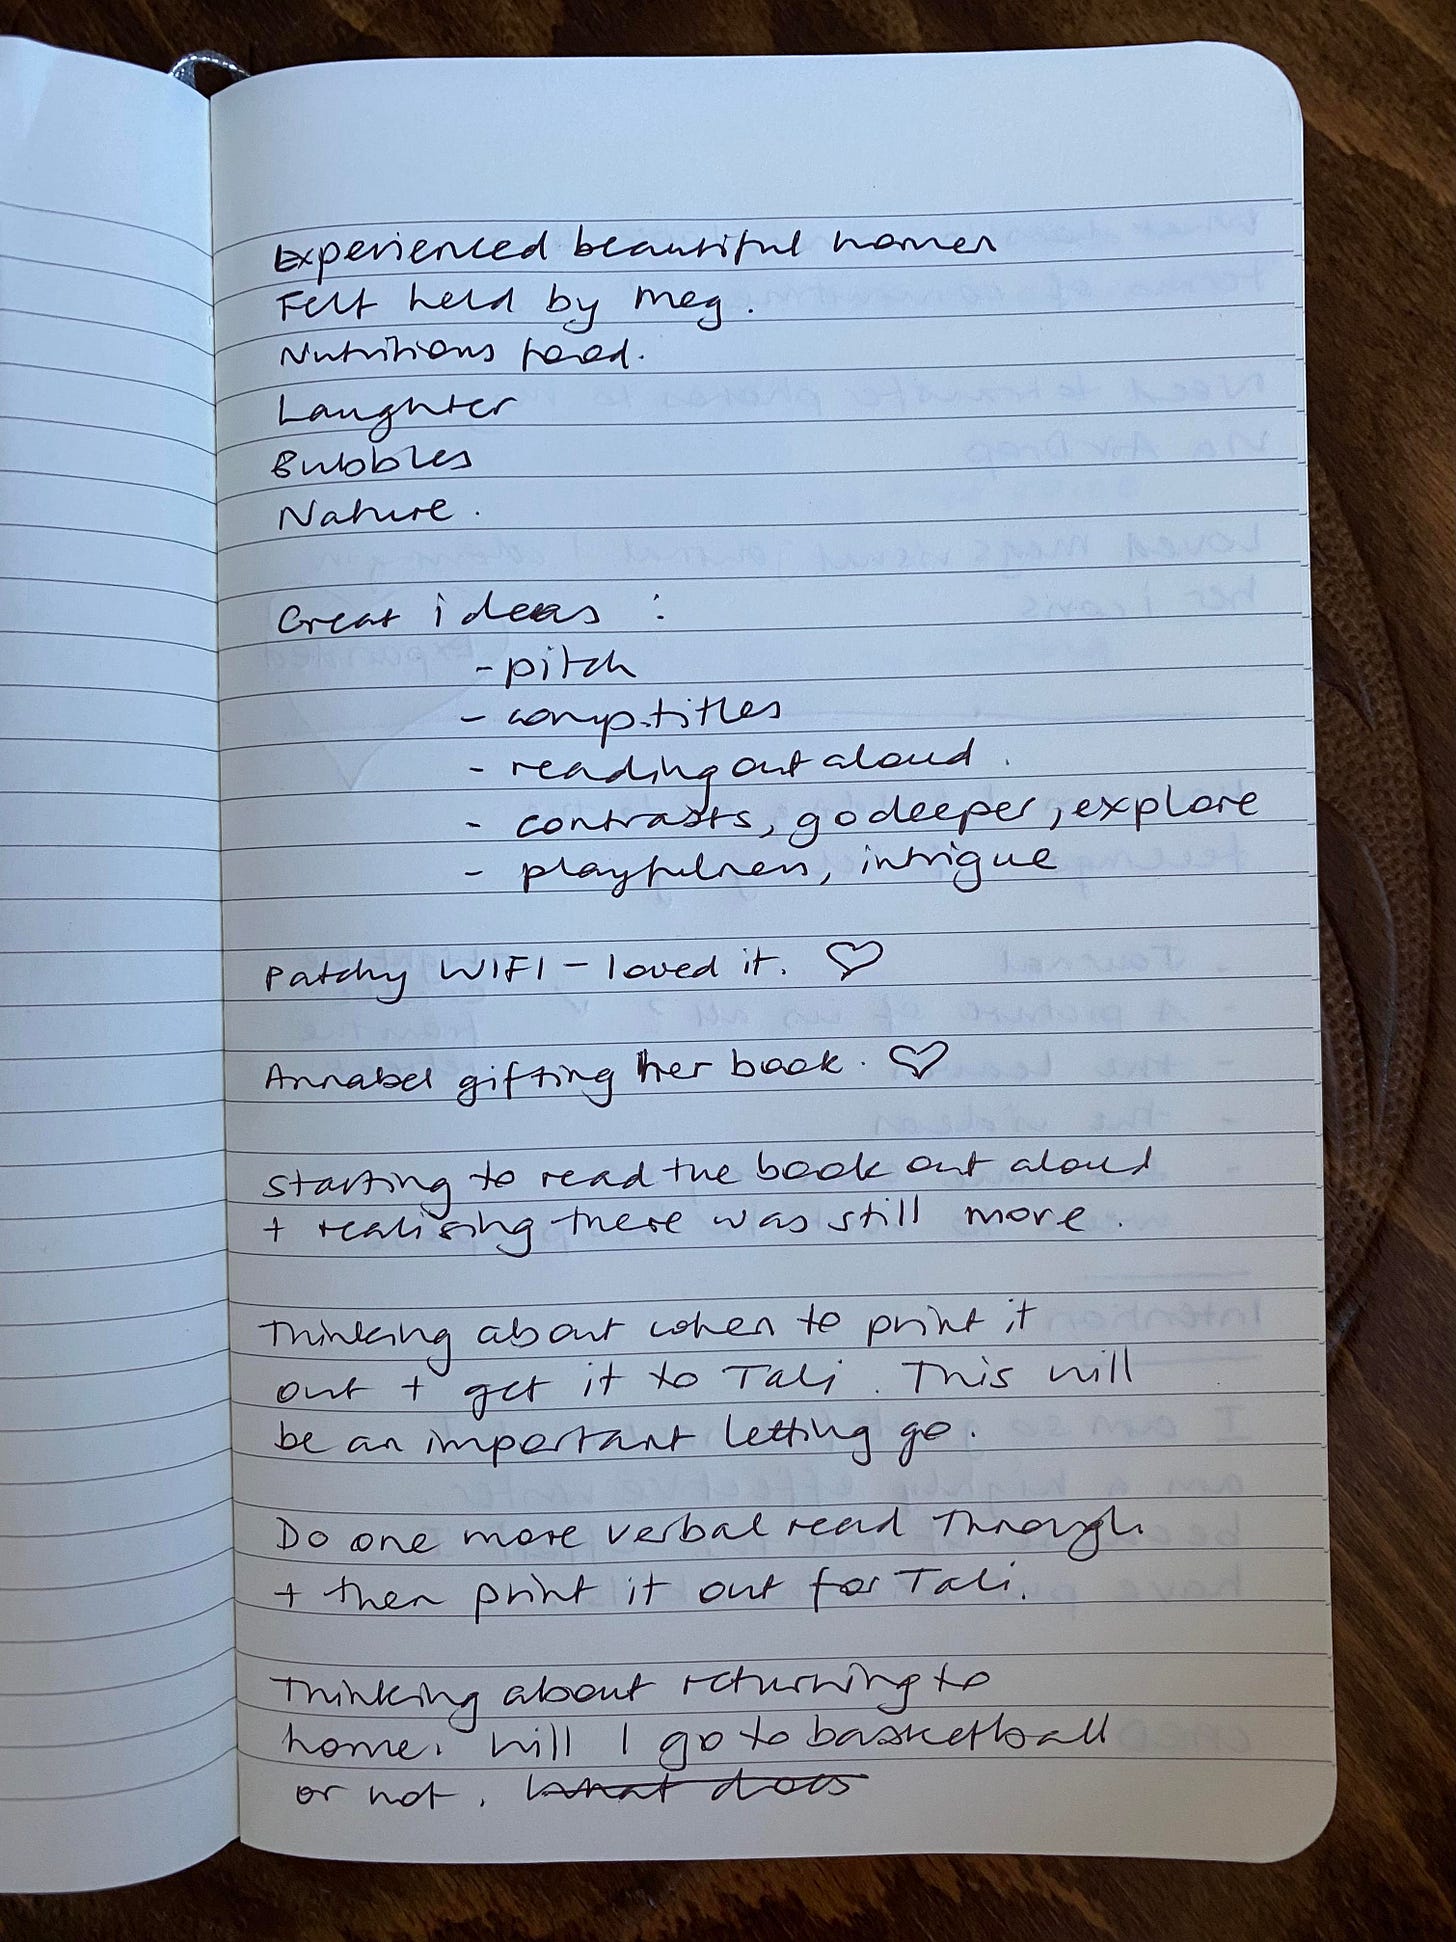 Experienced beautiful women
Felt held by Meg.
Nutritious food.
Laughter
Bubbles
Nature.
Great ideas :
- pitch
- comp.titles
- reading out aloud.
- contrasts, go deeper, explore
- playfulness, intrigue
Patchy WIFI - loved it. ♡
Annabel gifting her book. ♡
Starting to read the book out aloud
+ realising there was still more.
Thinking about when to print it
out + get it to Tali. This will
be an important letting go.
Do one more verbal read through
+ then print it out for Tali.
Thinking about returning to
home. Will I go to basketball
or not. What does